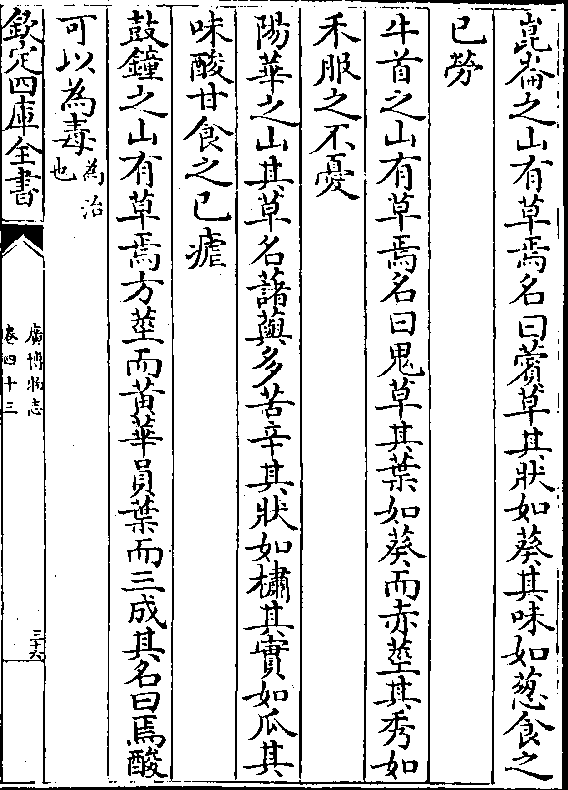 崑崙之山有草焉名曰薲草其狀如葵其味如葱食之
已勞
牛首之山有草焉名曰鬼草其葉如葵而赤莖其秀如
禾服之不憂
陽華之山其草名藷藇多苦辛其狀如橚其實如瓜其
味酸甘食之已瘧
鼓鐘之山有草焉方莖而黃華員葉而三成其名曰焉酸
可以為毒為治
也
欽定四庫全書
廣博物志
卷四十三
三十六